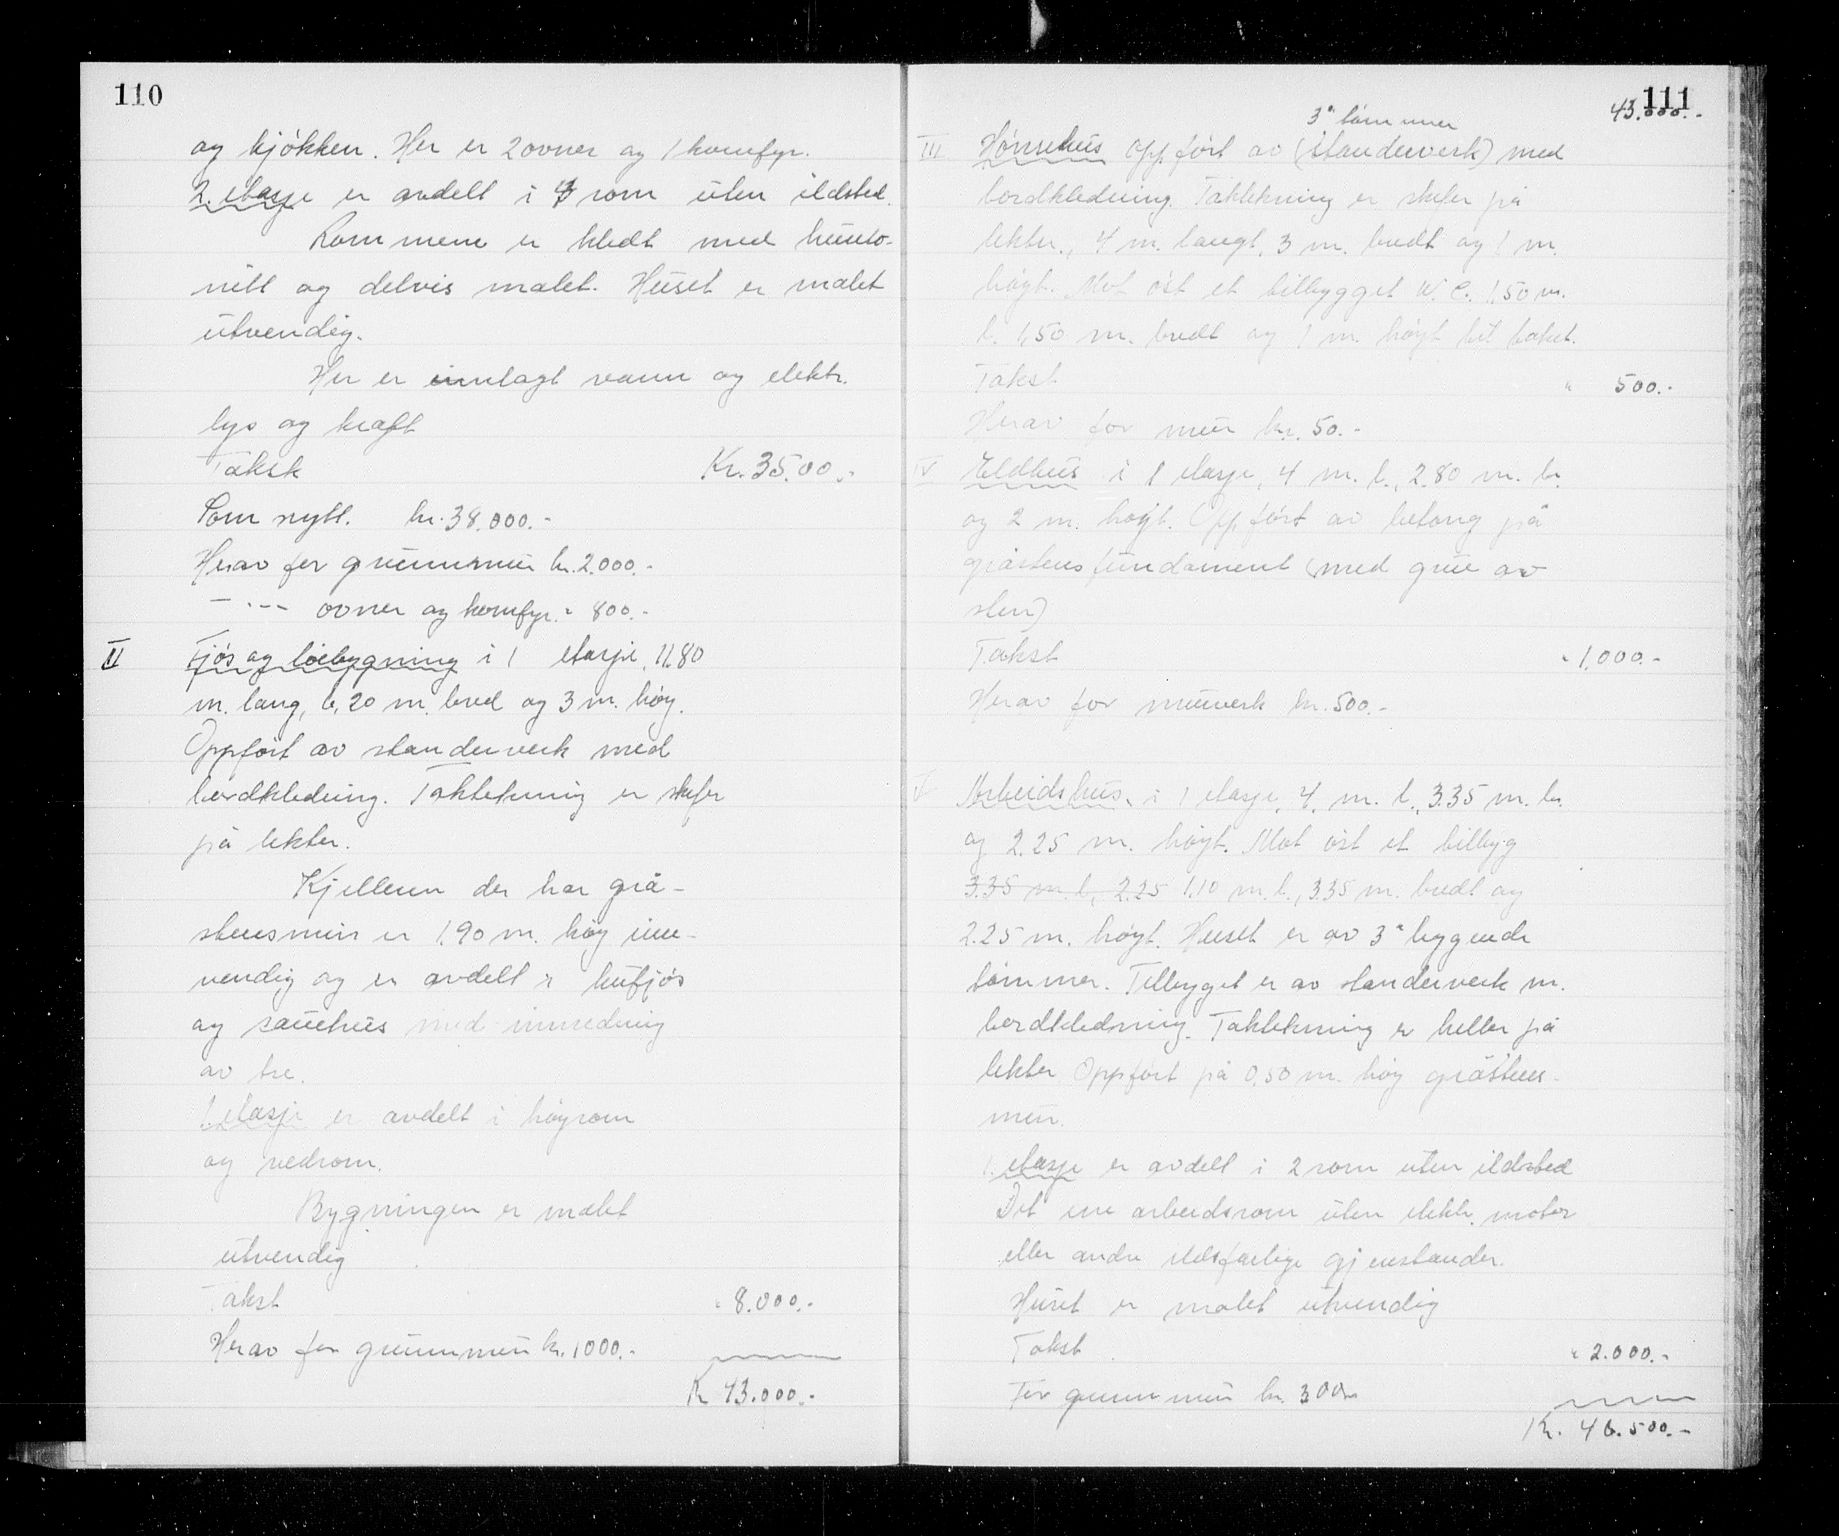 110
og kjökken. Her er 2 ovner og 1 komfyr.
2. etasje er avdelt i 4 rom uten ildsted.
Rommene er kledt med hunto-
nitt og delvis malet. Huset er malet
utvendig.
Her er innlagt vann og elektr.
lys og kraft
Takst Kr. 35.00.-
Som nytt. kr. 38.000.-
Herav for grunnmur kr. 2.000.-
— . -- ovner og komfyr. " 800.-
II Fjös og löebygning i 1 etasje, 11.80
m. lang, 6,20 m. bred og 3 m. höy.
Oppfört av standerverk med
bordkledning. Taktekning er skifer
på lekter.
Kjelleren der har grå-
stensmur er 1.90 m. höy inn-
vendig og er avdelt i kufjös
og sauehus med innredning
av tre.
1. etasje er avdelt i höyrom
og vedrom.
Bygningen er malet
utvendig
Takst " 8.000.-
Herav for grunnmur kr. 1000.-
Kr 43.000.-
111
43.000.-
3" tömmer
III Hönsehus oppfört av (standerverk) med
bordkledning. Taktekning er skifer på
lekter., 4 m. langt, 3 m. bredt og 1 m.
höyt. Mot öst et tilbygget W.C. 1,50 m.
l. 1,50 m. bredt og 1 m. höyt til taket.
Takst " 500.-
Herav for mur kr. 50.-
IV Eldhus i 1 etasje, 4 m. l., 2.80 m. br.
og 2 m. höyt. Oppfört av betong på
gråstensfundament (med grue av
sten)
Takst " 1.000.-
Herav for murverk kr. 500.-
V Arbeidshus. i 1 etasje, 4. m. l., 3.35 m. br.
og 2.25 m. höyt. Mot öst et tilbygg
3.35 m. l, 2.25 1.10 m. l., 3.35 m. bredt og
2.25 m. höyt. Huset er av 3" liggende
tömmer. Tilbygget er av standerverk m.
bordkledning. Taktekning er heller på
lekter Oppfört på 0,50 m. höy gråstens-
mur.
1. etasje er avdelt i 2 rom uten ildsted
Det ene arbeidsrom uten elektr. motor
eller andre ildsfarlige gjenstander.
Huset er malet utvendig
Takst " 2.000.-
For grunnmur kr. 300.-
Kr. 46.500.-